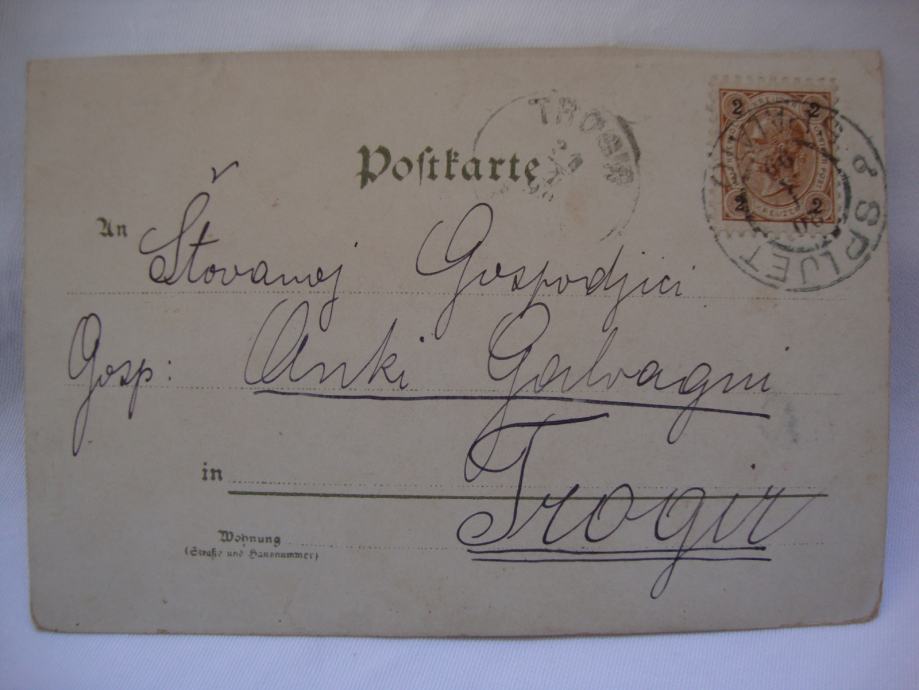 Postkarte
TROGIR
2 2
2 2
KREUZER
SPLJET
An Štovanoj Gospodjici
Gosp: Anki Galvagni
in Trogir
Wohnung
(Straße und Hausnummer)